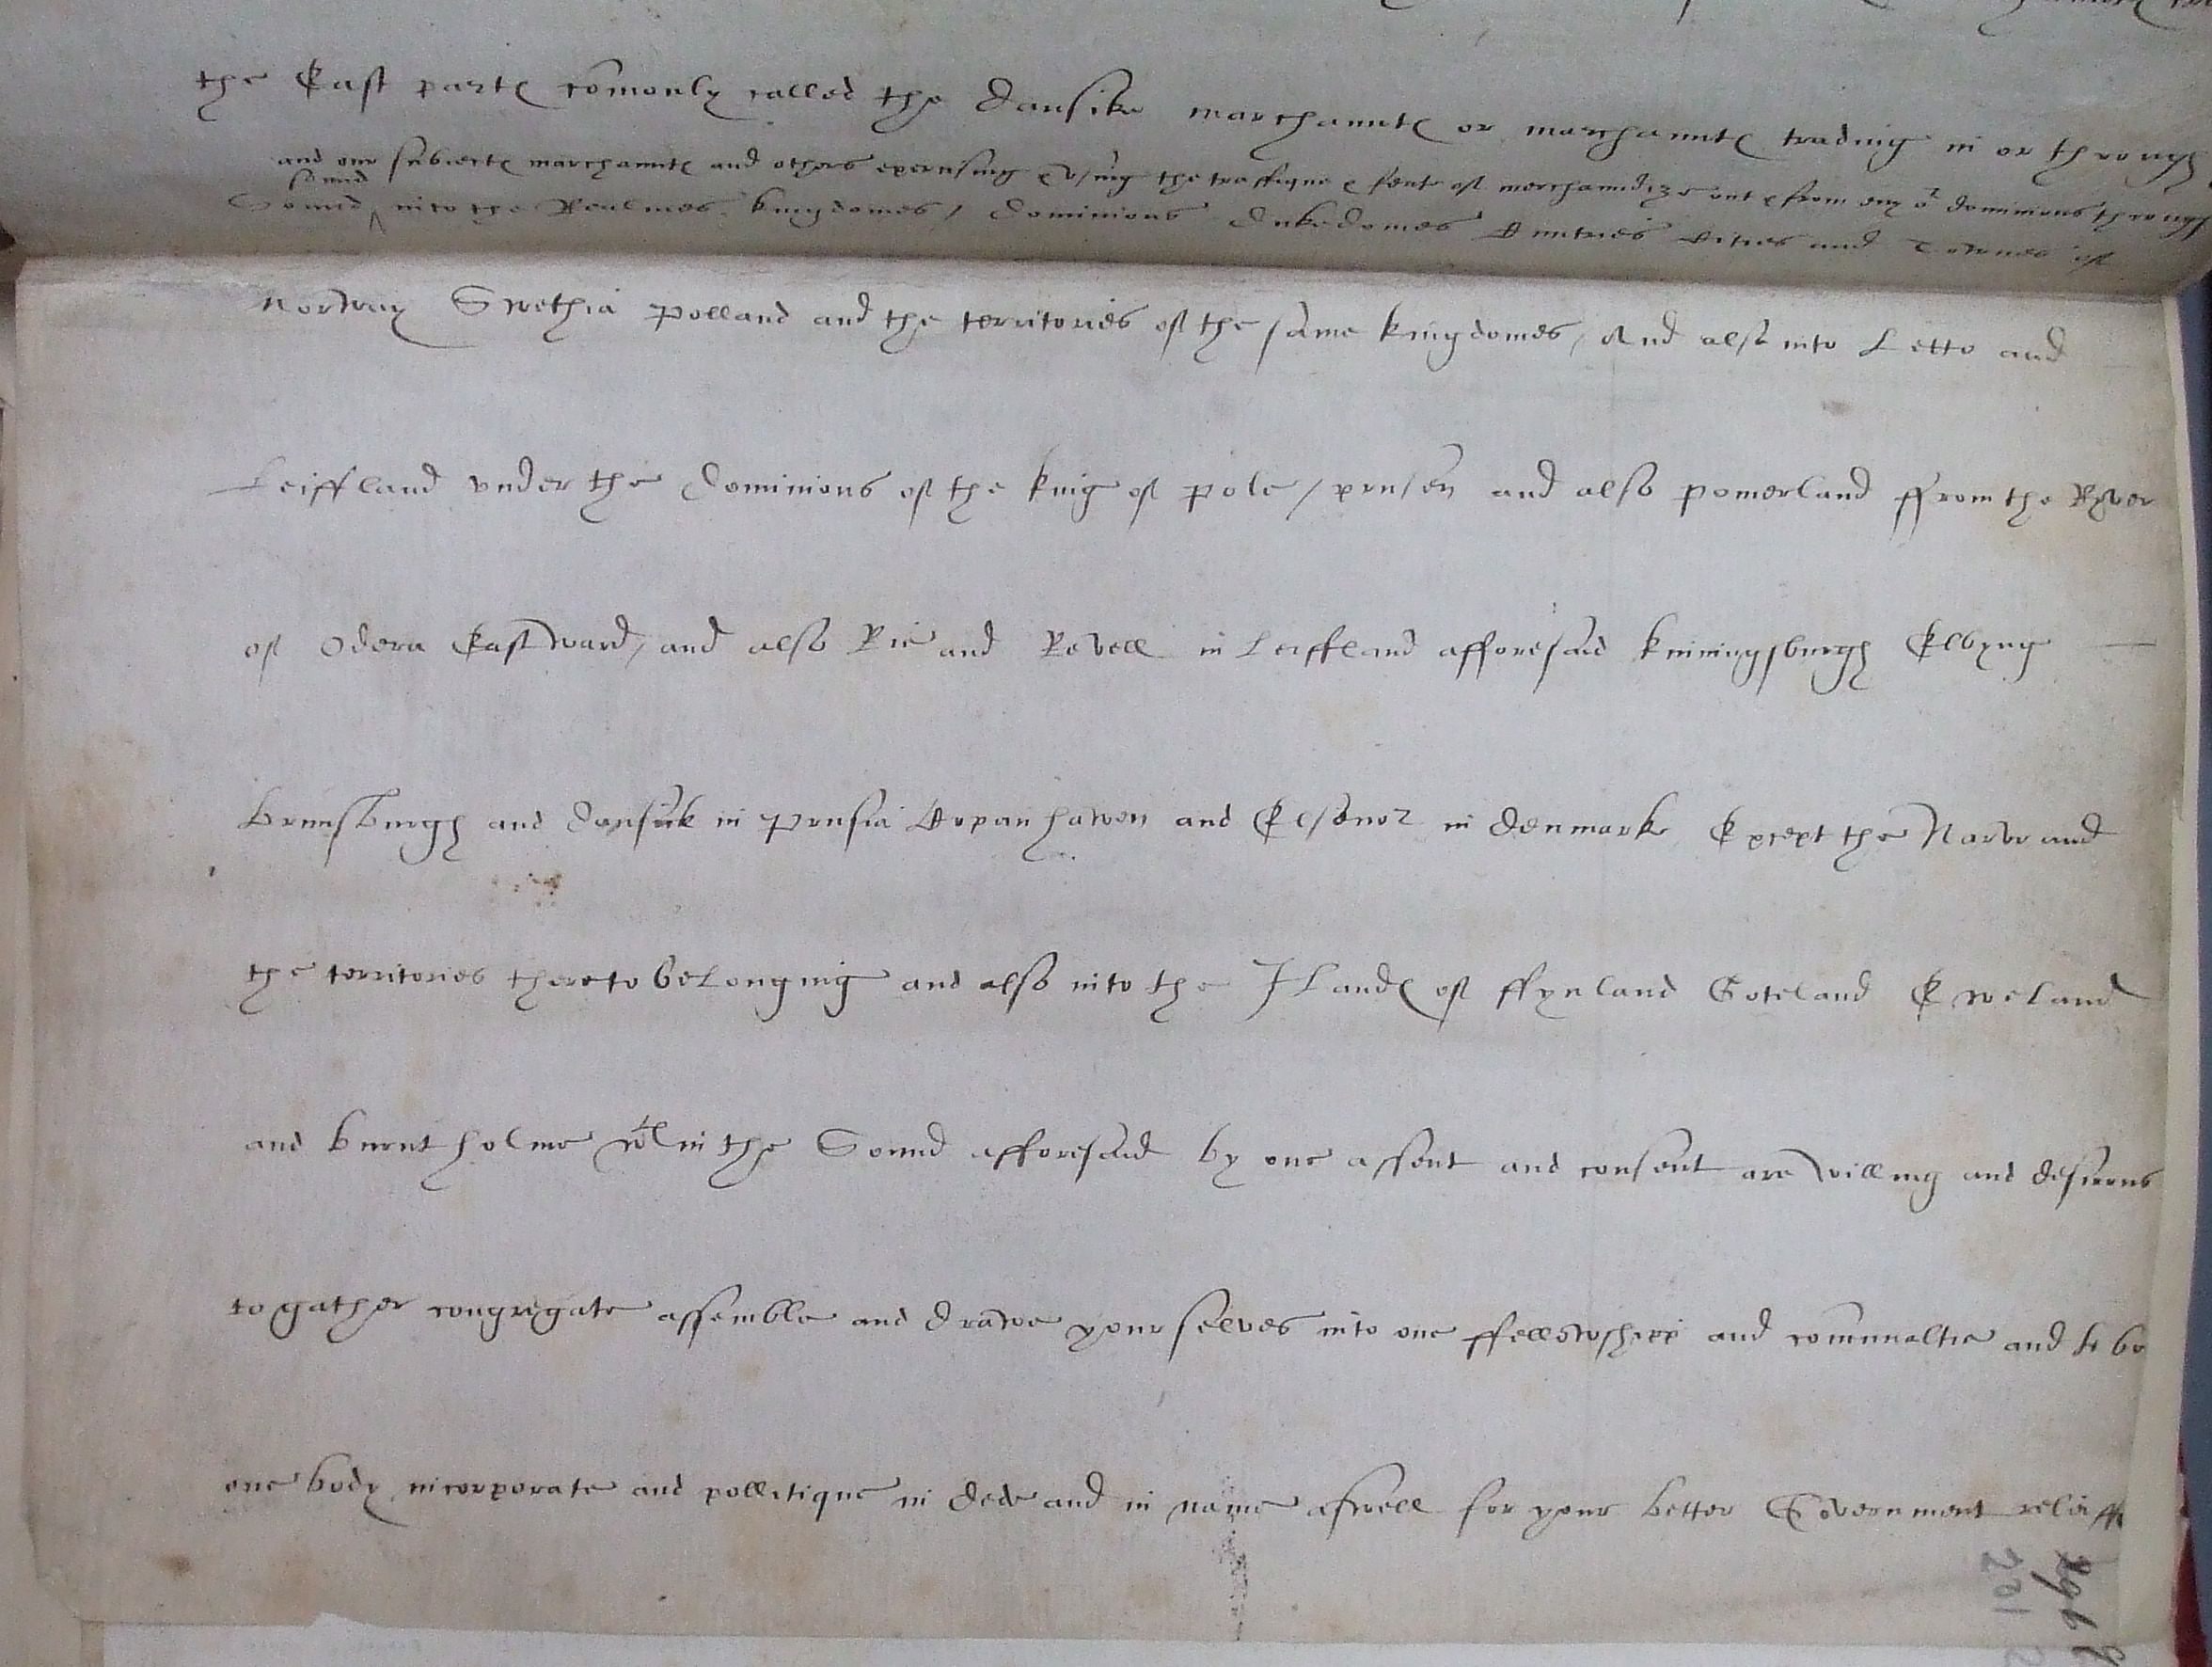 the East partes comonly called the Dansike marchauntes or marchauntes trading in or through
and our subiectes marchauntes and others exercising & vsing the traffique & feate of merchaundize out & from any or dominions through
sound
Sound into the Realmes kingdomes / dominions Dukedomes Cuntries Cities and Townes of
Norway Swethia Polland and the territories of the same kingdomes, And also into Letto and
Leiffland vnder the Dominions of the king of Pole / prusen and also Pomerland ffrom the Ryver
of Odera Eastward, and also Rie and Revell in Leiffland afforesaid Kuiningsburgh Elbyng
Brunsburgh and Dansick in Prusia Copanhawen and Elsenor in Denmarke Except the Narve and
the territories thereto belonging and also into the Ilandes of ffynland Goteland Eweland
and Burntholme wt in the Sound afforesaid by one assent and consent are willing and desirous
to gather congregate assemble and drawe your selves into one ffellowshipp and comunaltie and to be
one body incorporate and pollitique in dede and in name aswell for your better Government relieff
201